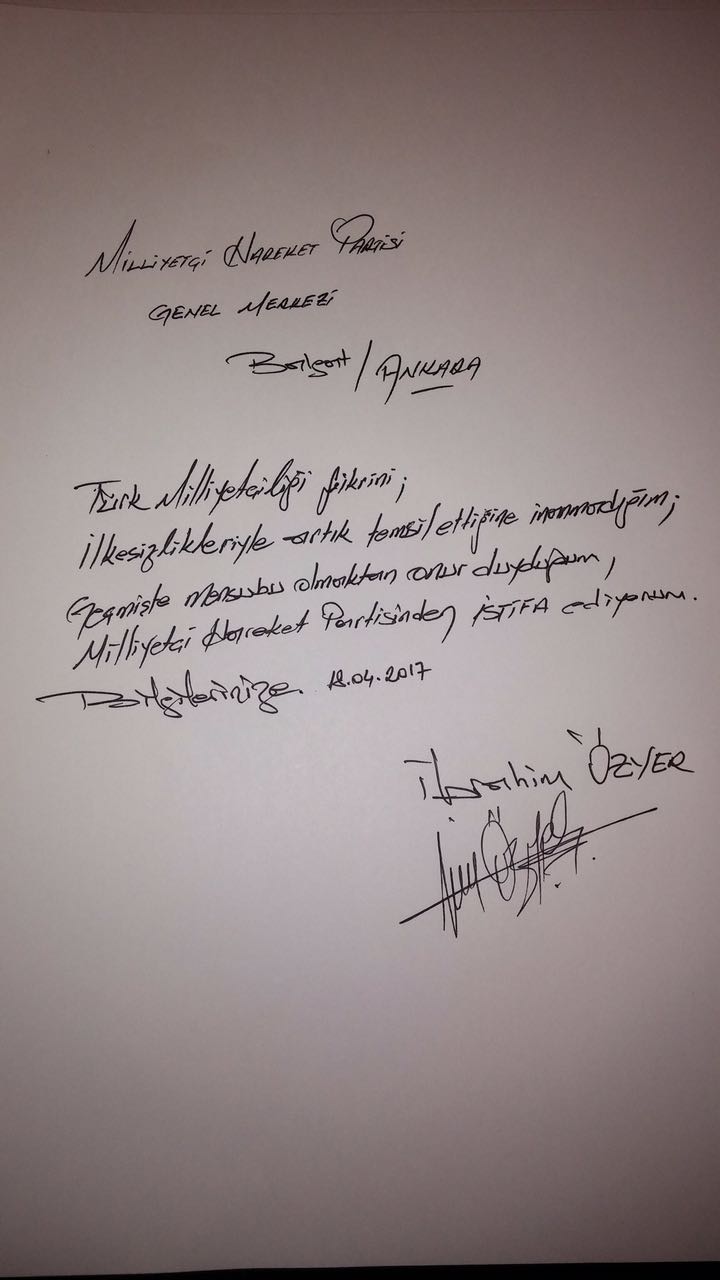 MİLLİYETÇİ HAREKET PARTİSİ
GENEL MERKEZİ
Balgat / ANKARA
Türk Milliyetçiliği fikrini;
İlkesizlikleriyle artık temsil ettiğine inanmadığım;
Geçmişte mensubu olmaktan onur duyduğum,
Milliyetçi Hareket Partisinden İSTİFA ediyorum.
Bilgilerinize. 18.04.2017
İbrahim ÖZYER